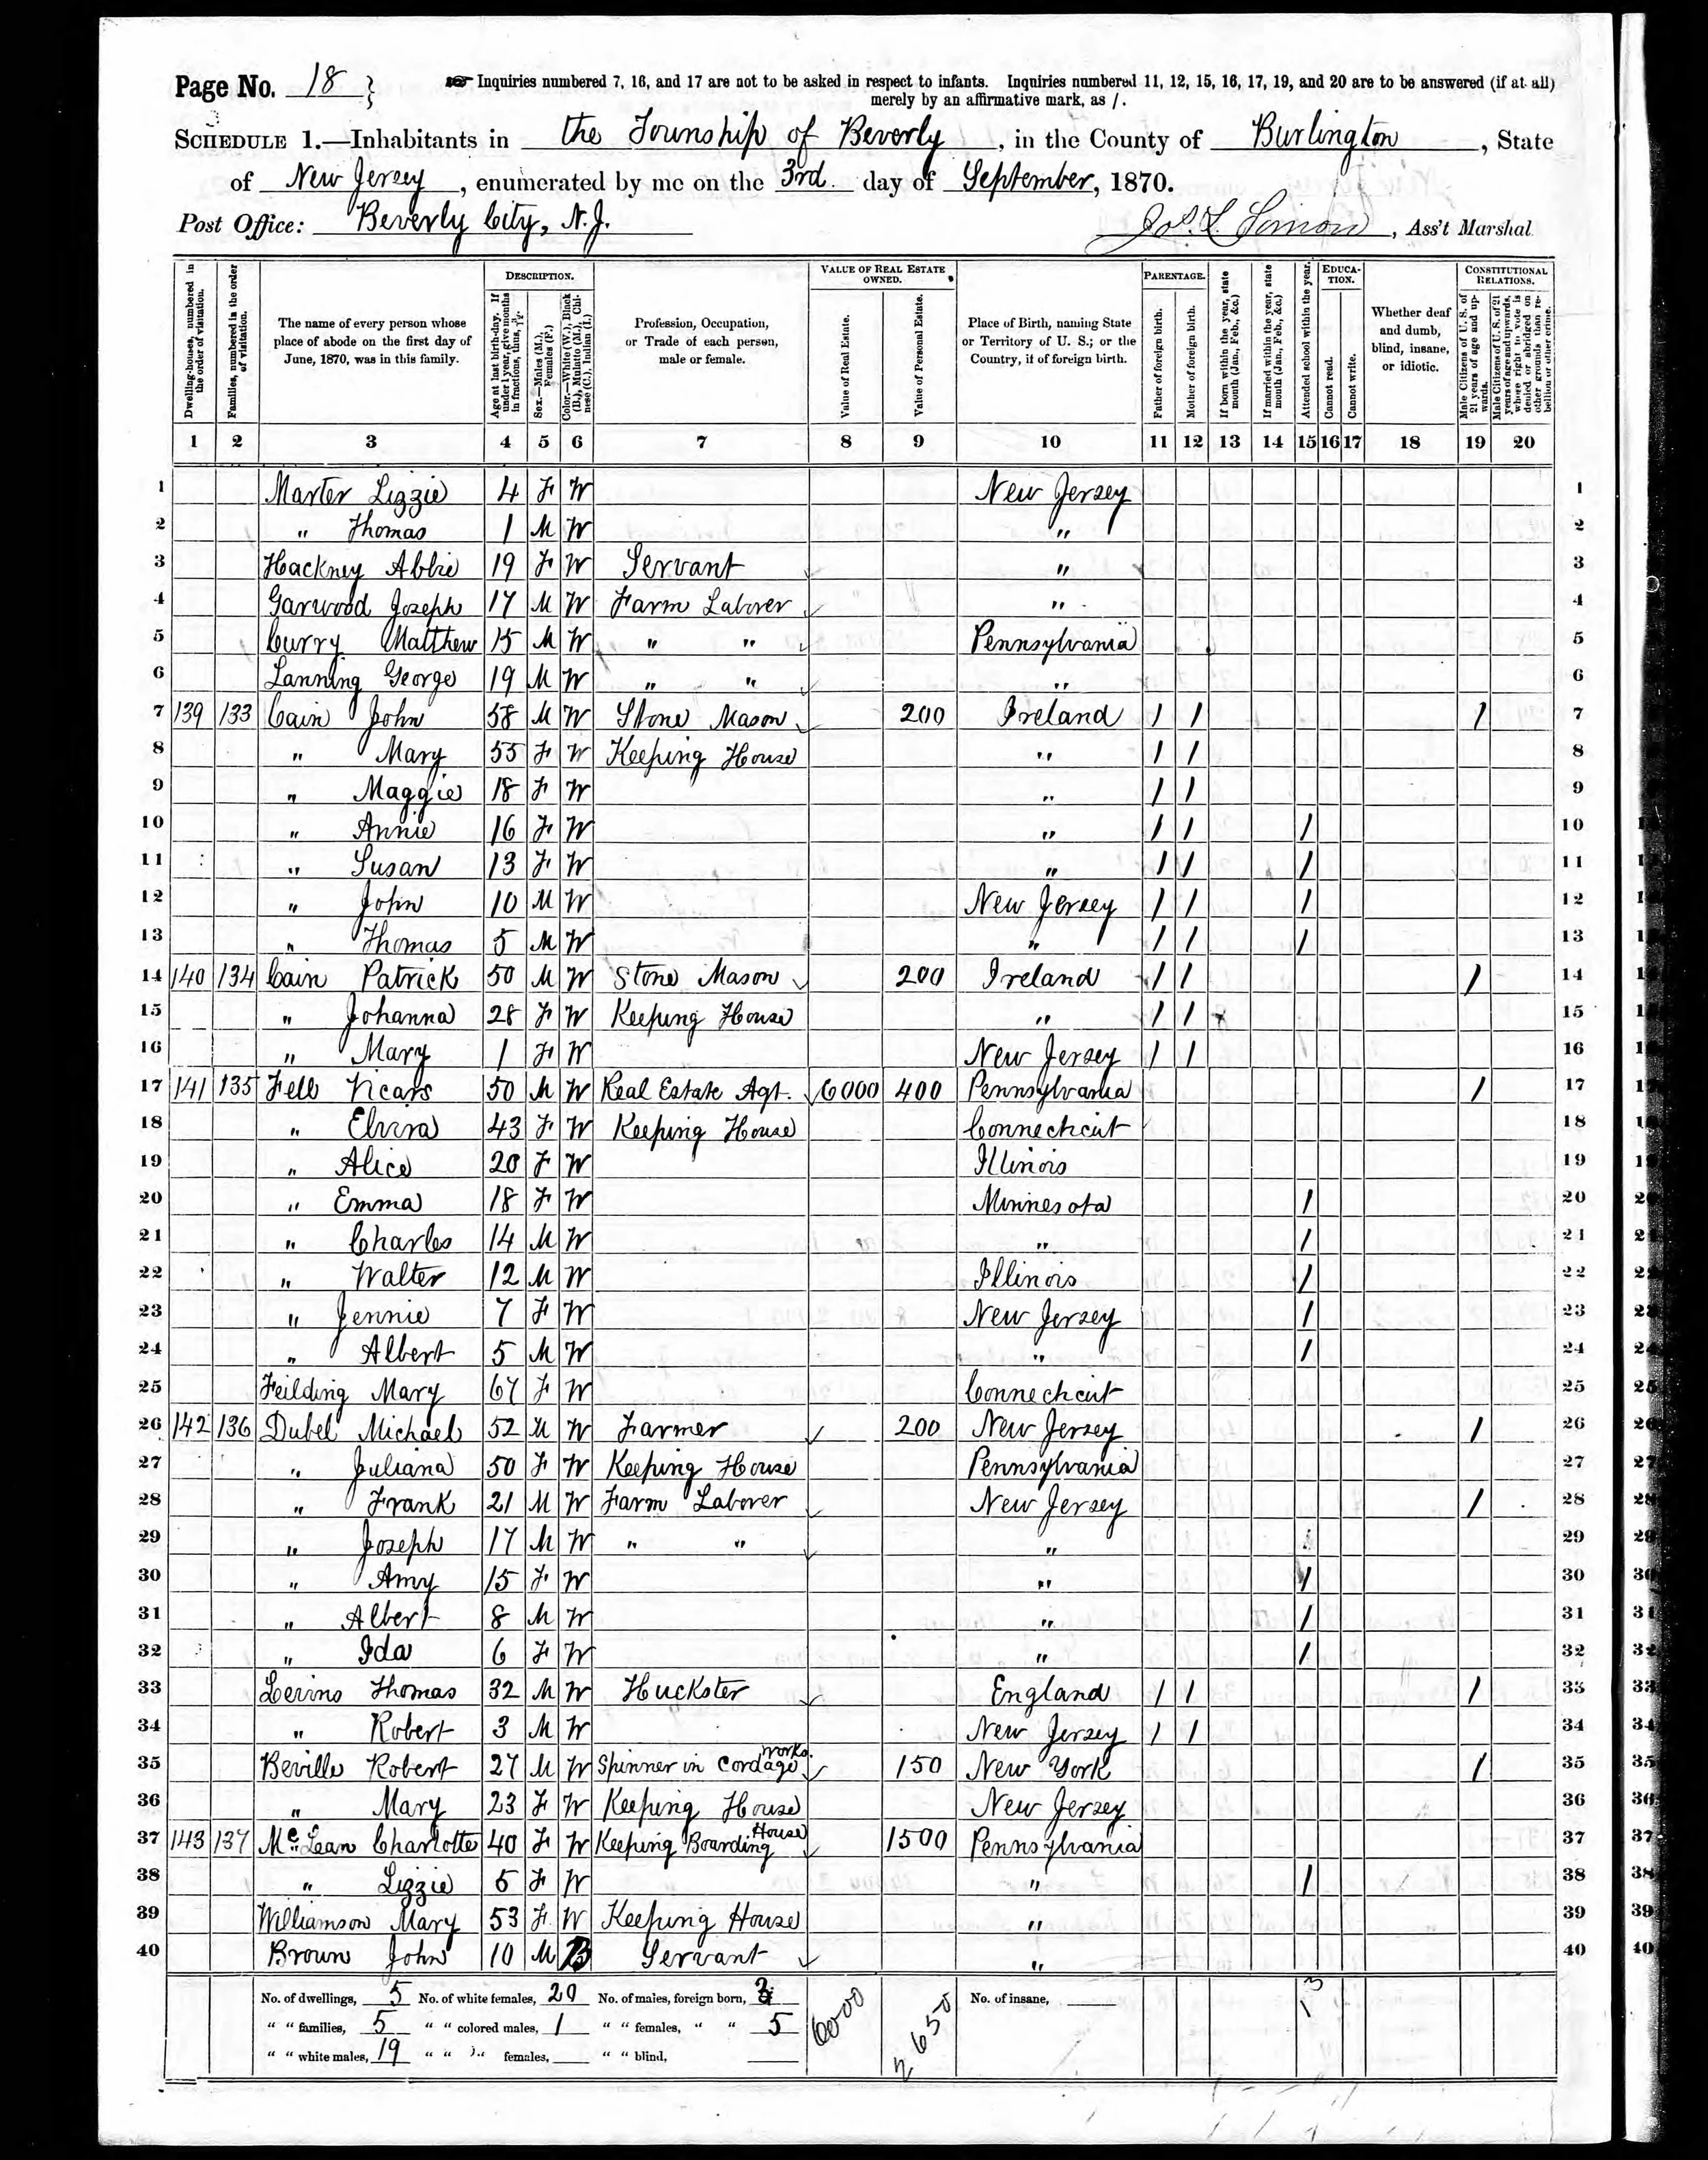 Page No. 18 } Inquiries numbered 7, 16, and 17 are not to be asked in respect to infants. Inquiries numbered 11, 12, 15, 16, 17, 19, and 20 are to be answered (if at all)
merely by an affirmative mark, as /.
SCHEDULE 1.—Inhabitants in the Township of Beverly, in the County of Burlington, State
of New Jersey, enumerated by me on the 3rd. day of September, 1870.
Post Office: Beverly City, N.J. Jos. L. , Ass't Marshal.
Dwelling-houses, numbered in the order of visitation.
Families, numbered in the order of visitation.
The name of every person whose place of abode on the first day of June, 1870, was in this family.
DESCRIPTION.
Age at last birth-day. If under 1 year, give months in fractions, thus, 3/12.
Sex.—Males (M.), Females (F.)
Color.—White (W.), Black (B.), Mulatto (M.), Chinese (C.), Indian (I.)
Profession, Occupation, or Trade of each person, male or female.
VALUE OF REAL ESTATE OWNED.
Value of Real Estate.
Value of Personal Estate.
Place of Birth, naming State or Territory of U. S.; or the Country, if of foreign birth.
PARENTAGE.
Father of foreign birth.
Mother of foreign birth.
If born within the year, state month (Jan., Feb., &c.)
If married within the year, state month (Jan., Feb., &c.)
Attended school within the year.
EDUCATION.
Cannot read.
Cannot write.
Whether deaf and dumb, blind, insane, or idiotic.
CONSTITUTIONAL RELATIONS.
Male Citizens of U. S. of 21 years of age and upwards.
Male Citizens of U. S. of 21 years of age and upwards, where right to vote is denied or abridged on other grounds than rebellion or other crime.
1 2 3 4 5 6 7 8 9 10 11 12 13 14 15 16 17 18 19 20
1 Marter Lizzie 4 F W New Jersey 1
2 " Thomas 1 M W " 2
3 Hackney Abbie 19 F W Servant " 3
4 Garwood Joseph 17 M W Farm Laborer " 4
5 Curry Matthew 15 M W " " Pennsylvania 5
6 Lanning George 19 M W " " " 6
7 139 133 Cain John 58 M W Stone Mason 200 Ireland / / / 7
8 " Mary 55 F W Keeping House " / / 8
9 " Maggie 18 F W " / / 9
10 " Annie 16 F W " / / / 10
11 " Susan 13 F W " / / / 11
12 " John 10 M W New Jersey / / / 12
13 " Thomas 5 M W " / / / 13
14 140 134 Cain Patrick 50 M W Stone Mason 200 Ireland / / / 14
15 " Johanna 28 F W Keeping House " / / 15
16 " Mary 1 F W New Jersey / / 16
17 141 135 Fell Vicars 50 M W Real Estate Agt. 6000 400 Pennsylvania / 17
18 " Elvira 43 F W Keeping House Connecticut 18
19 " Alice 20 F W Illinois 19
20 " Emma 18 F W Minnesota / 20
21 " Charles 14 M W " / 21
22 " Walter 12 M W Illinois / 22
23 " Jennie 7 F W New Jersey / 23
24 " Albert 5 M W " / 24
25 Feilding Mary 67 F W Connecticut 25
26 142 136 Dubel Michael 52 M W Farmer 200 New Jersey / 26
27 " Juliana 50 F W Keeping House Pennsylvania 27
28 " Frank 21 M W Farm Laborer New Jersey / 28
29 " Joseph 17 M W " " " 29
30 " Amy 15 F W " / 30
31 " Albert 8 M W " / 31
32 " Ida 6 F W " / 32
33 Levins Thomas 32 M W Huckster England / / / 33
34 " Robert 3 M W New Jersey / / 34
35 Beville Robert 27 M W Spinner in Cordage Works. 150 New York / 35
36 " Mary 23 F W Keeping House New Jersey 36
37 143 137 McLean Charlotte 40 F W Keeping Boarding House 1500 Pennsylvania 37
38 " Lizzie 5 F W " / 38
39 Williamson Mary 53 F W Keeping House " 39
40 Brown John 10 M B Servant " 40
No. of dwellings, 5 No. of white females, 20 No. of males, foreign born, 3 6000 2650 No. of insane, 13
" " families, 5 " " colored males, 1 " " females, " " 5
" " white males, 19 " " " females, " " blind,